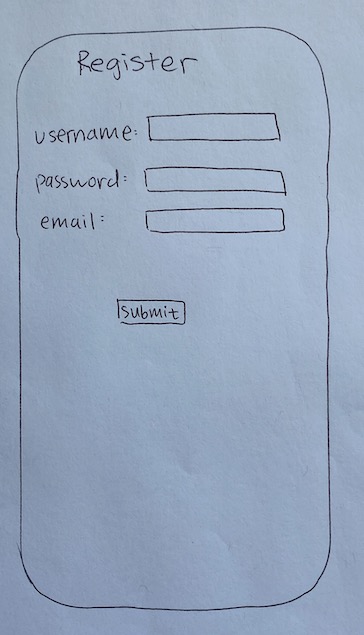 Register
username:
password:
email:
submit